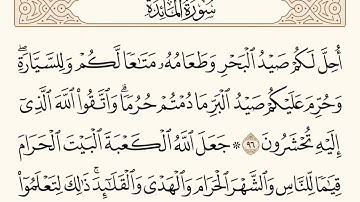 سُورَةُ المَائِدَةِ
أُحِلَّ لَكُمْ صَيْدُ الْبَحْرِ وَطَعَامُهُۥ مَتَٰعًا لَّكُمْ وَلِلسَّيَّارَةِۖ
وَحُرِّمَ عَلَيْكُمْ صَيْدُ الْبَرِّ مَا دُمْتُمْ حُرُمًاۗ وَاتَّقُوا۟ اللَّهَ الَّذِىٓ
إِلَيْهِ تُحْشَرُونَ ٩٦ ۞ جَعَلَ اللَّهُ الْكَعْبَةَ الْبَيْتَ الْحَرَامَ
قِيَٰمًا لِّلنَّاسِ وَالشَّهْرَ الْحَرَامَ وَالْهَدْىَ وَالْقَلَٰٓئِدَۚ ذَٰلِكَ لِتَعْلَمُوٓا۟